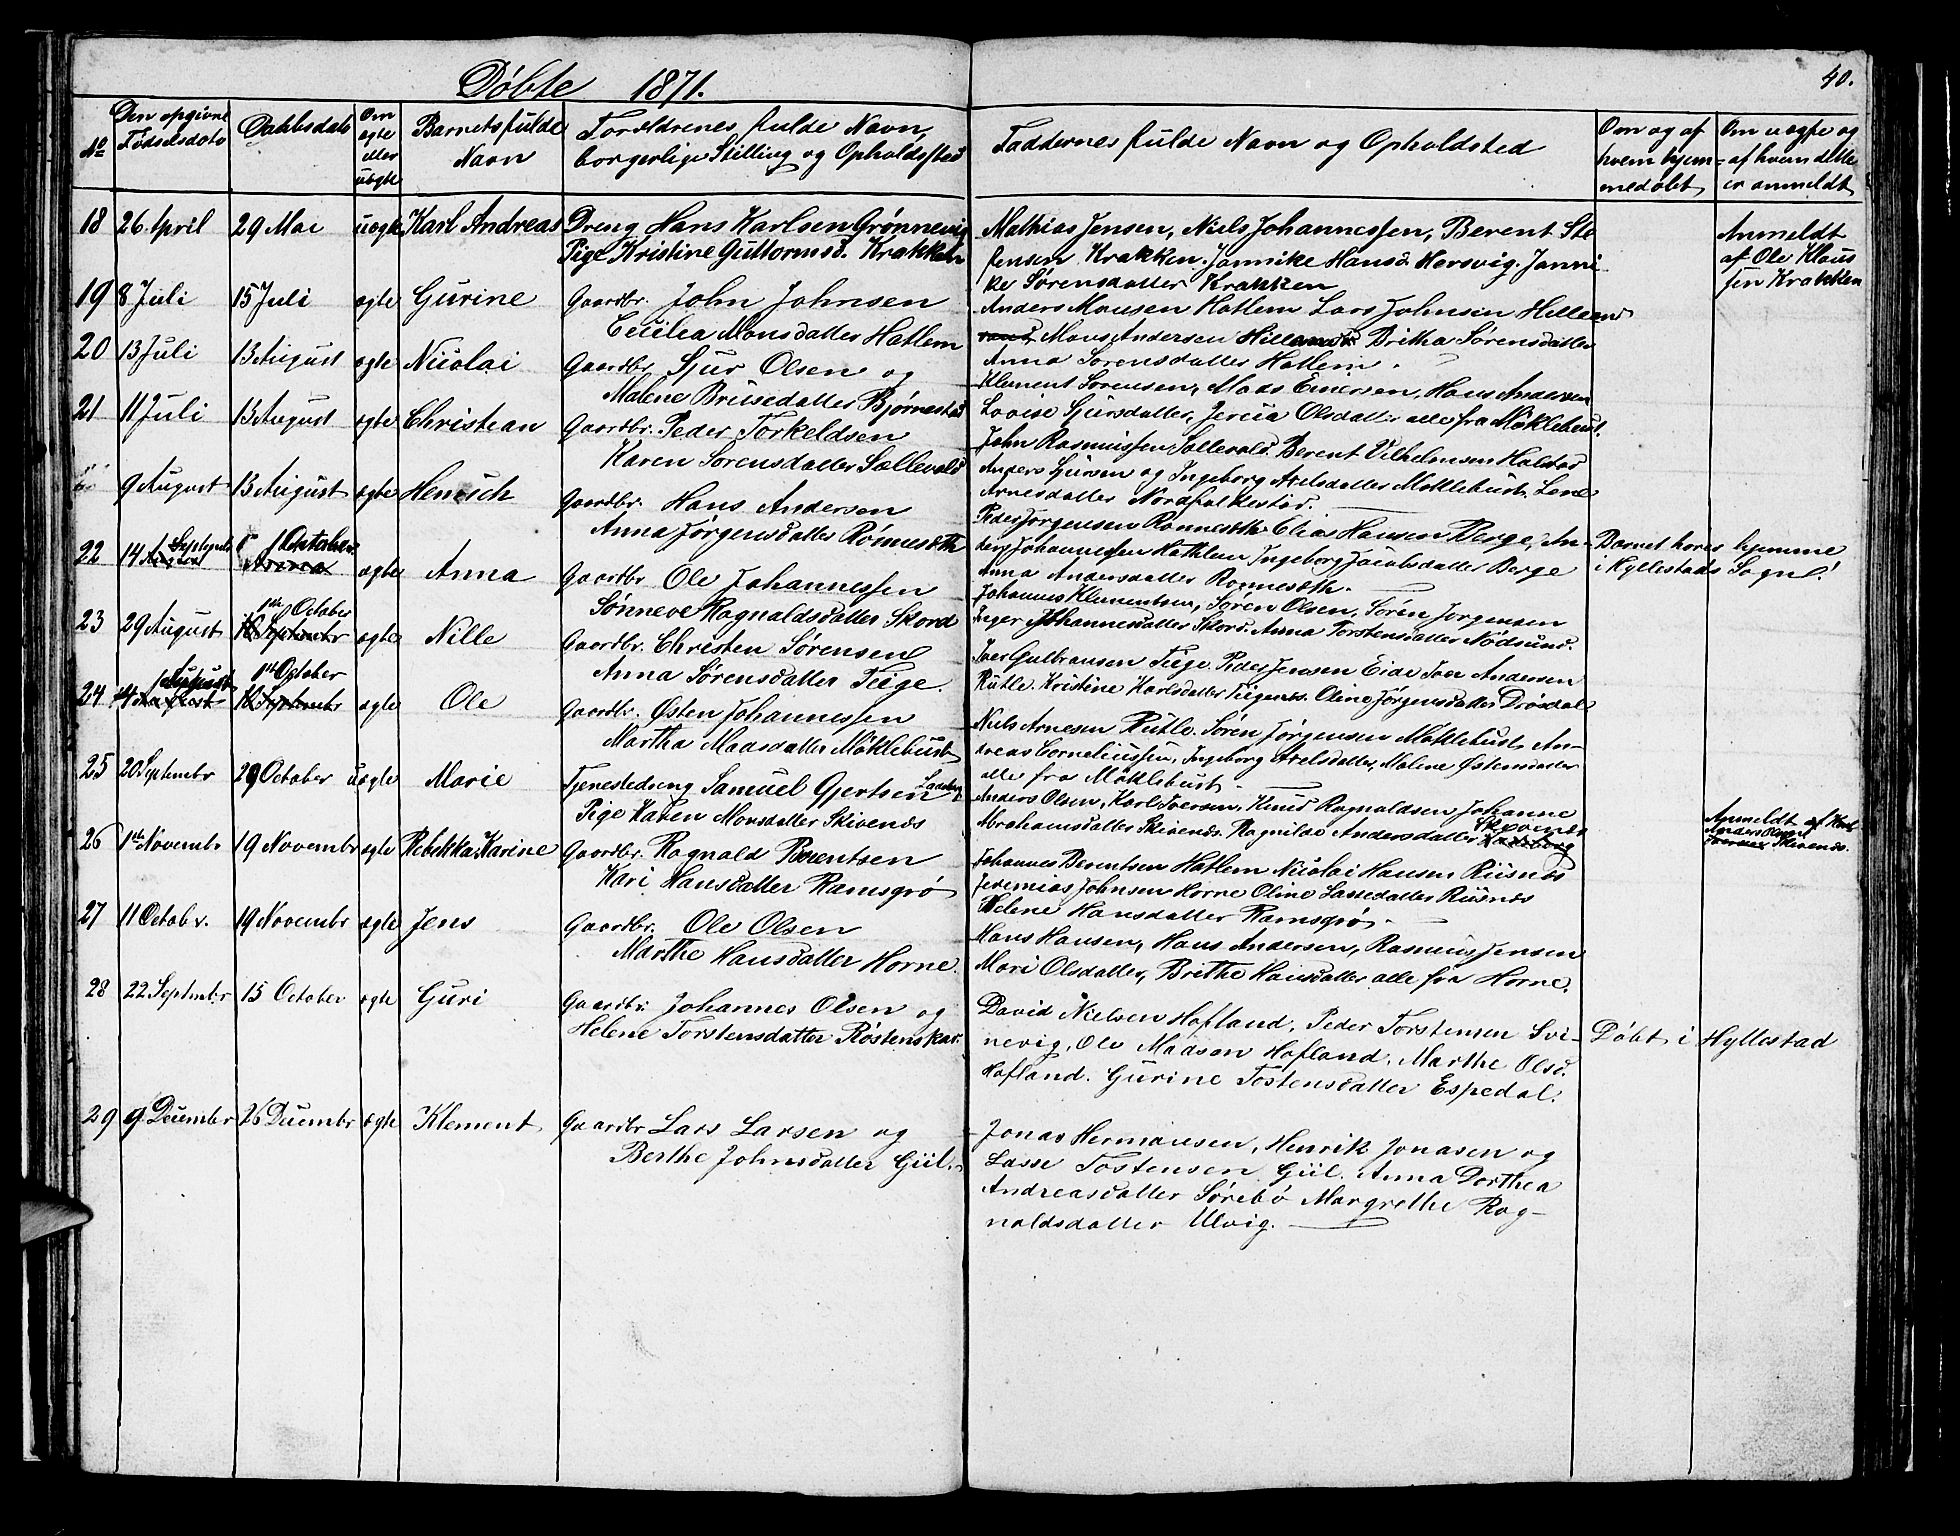 Döbte 1871.
40.
No
Den opgivne Födselsdato
Daabsdato
Om ægte eller uægte
Barnets fulde Navn
Forældrenes fulde Navn, borgerlige Stilling og Opholdssted
Faddernes fulde Navn og Opholdsted
Om og af hvem hjemmedøbt
Om uægte og af hvem dette er anmeldt
18 26 April 29 Mai uægte Karl Andreas Dreng Hans Karlsen Grønnevig
Pige Kristine Guttormsd. Krakken
Mathias Jensen, Niels Johannessen, Berent Ste
fensen Krakken. Jannike Hansd. Hersvig. Janni
ke Sørensdatter Krakken
Anmeldt
af Ole Klaus
sen Krakken
19 8 Juli 15 Juli ægte Gurine Gaardbr. John Johnsen
Cecilea Monsdatter Hatlem
Anders Monsen Hatlem Lars Johnsen Hilleand
Mons Andersen Hilleand Britha Sørensdatter
Anna Sørensdatter Hatlem.
20 13 Juli 13 August ægte Nicolai Gaardbr. Sjur Olsen og
Malene Brusedatter Bjørnestad
Klement Sørensen, Mads Hans Andersen
Lovise Sjursdatter, Olsdatter alle fra Möklebust.
21 11 Juli 13 August ægte Christian Gaardbr. Peder Torkeldsen
Karen Sorensdatter Sællevold
John Rasmussen Sollevold. Berent Vilhelmsen Holstad
Anders Sjursen og Ingeborg Axelsdatter Möklebust, Lene
Arnesdatter Nordfolkestad.
9 August 13 August ægte Henrich Gaardbr. Hans Andersen
Anna Jørgensdatter Rønnesøth
Peder Jørgensen Ronnesøth Elias Hansen Berge, An-
ders Johannessen Hathlem Ingeborg Jacobsdatter Berge
Anna Andersdatter Ronnesøth.
Barnet höres hjemme
i Hyllestads Sogn!
22 14 Septembr 1 October ægte Anna Gaardbr Ole Johannessen
Sønneve Ragnaldsdatter Skord
Johannes Klementsen, Søren Olsen, Sören Jorgensen
Inger Johannesdatter Skord. Anna Torstensdatter Nödsund.
23 29 August 1ste October 10 Septembr ægte Nille Gaardbr. Christen Sørensen
Anna Sørensdatter Tiege.
Iver Gulbransen Tiege Peder Jensen Eide Iver Andersen
Rutle. Kristine Karlsdatter Oline Jørgensdatter Drösdal
24 August 1ste October 10 Septembr ægte Ole Gaardbr. Østen Johannessen
Martha Madsdatter Möklebust
Niels Arnesen Rutle. Sören Jörgensen Möklebust An-
dreas Corneliussen, Ingeborg Axelsdatter, Malene Østensdatter
alle fra Möklebust
25 20 Septembr 29 October uægte Marie Tjenestedreng Samuel Gjertsen
Pige Karen Monsdatter Skivenes
Anders Olsen, Karl Iversen, Knud Ragnaldsen Johanne
Abrahamsdatter Skivenes. Ragnilde Andersdatter Skivenes
Anmeldt af Karl
Anders Olsen
Iversen Skivenes.
26 1ste Novembr 19 Novembr ægte Rebekka Karine Gaardbr. Ragnald Berentsen
Kari Hansdatter Ramsgrø
Johannes Berentsen Hatlem Nicolai Hansen Risnes
Jeremias Johnsen Horne Oline Lassedatter Risnes
Helene Hansdatter Ramsgrø.
27 11 Octobr. 19 Novembr ægte Jens Gaardbr. Ole Olsen
Marthe Hansdatter Horne.
Hans Hansen, Hans Andersen, Rasmus Jensen
Mari Olsdatter, Brithe Hansdatter alle fra Horne.
28 22 Septmbr 15 October ægte Guri Gaardbr. Johannes Olsen og
Helene Torstensdatter Røstenskar.
David Nielsen Hofland, Peder Torstensen Svi-
nevig, Ole Madsen Hofland, Marthe Olsd.
Hofland. Gurine Tostensdatter Espedal.
Döbt i Hyllestad
29 9 Decembr 26 Decembr ægte Klement Gaardbr Lars Larsen og
Berthe Johnsdatter Giil.
Jonas Hermansen, Henrik Jonasen og
Lasse Tostensen Giil. Anna Dorthea
Andreasdatter Sørebø Margrethe Rag-
naldsdatter Ulvig.